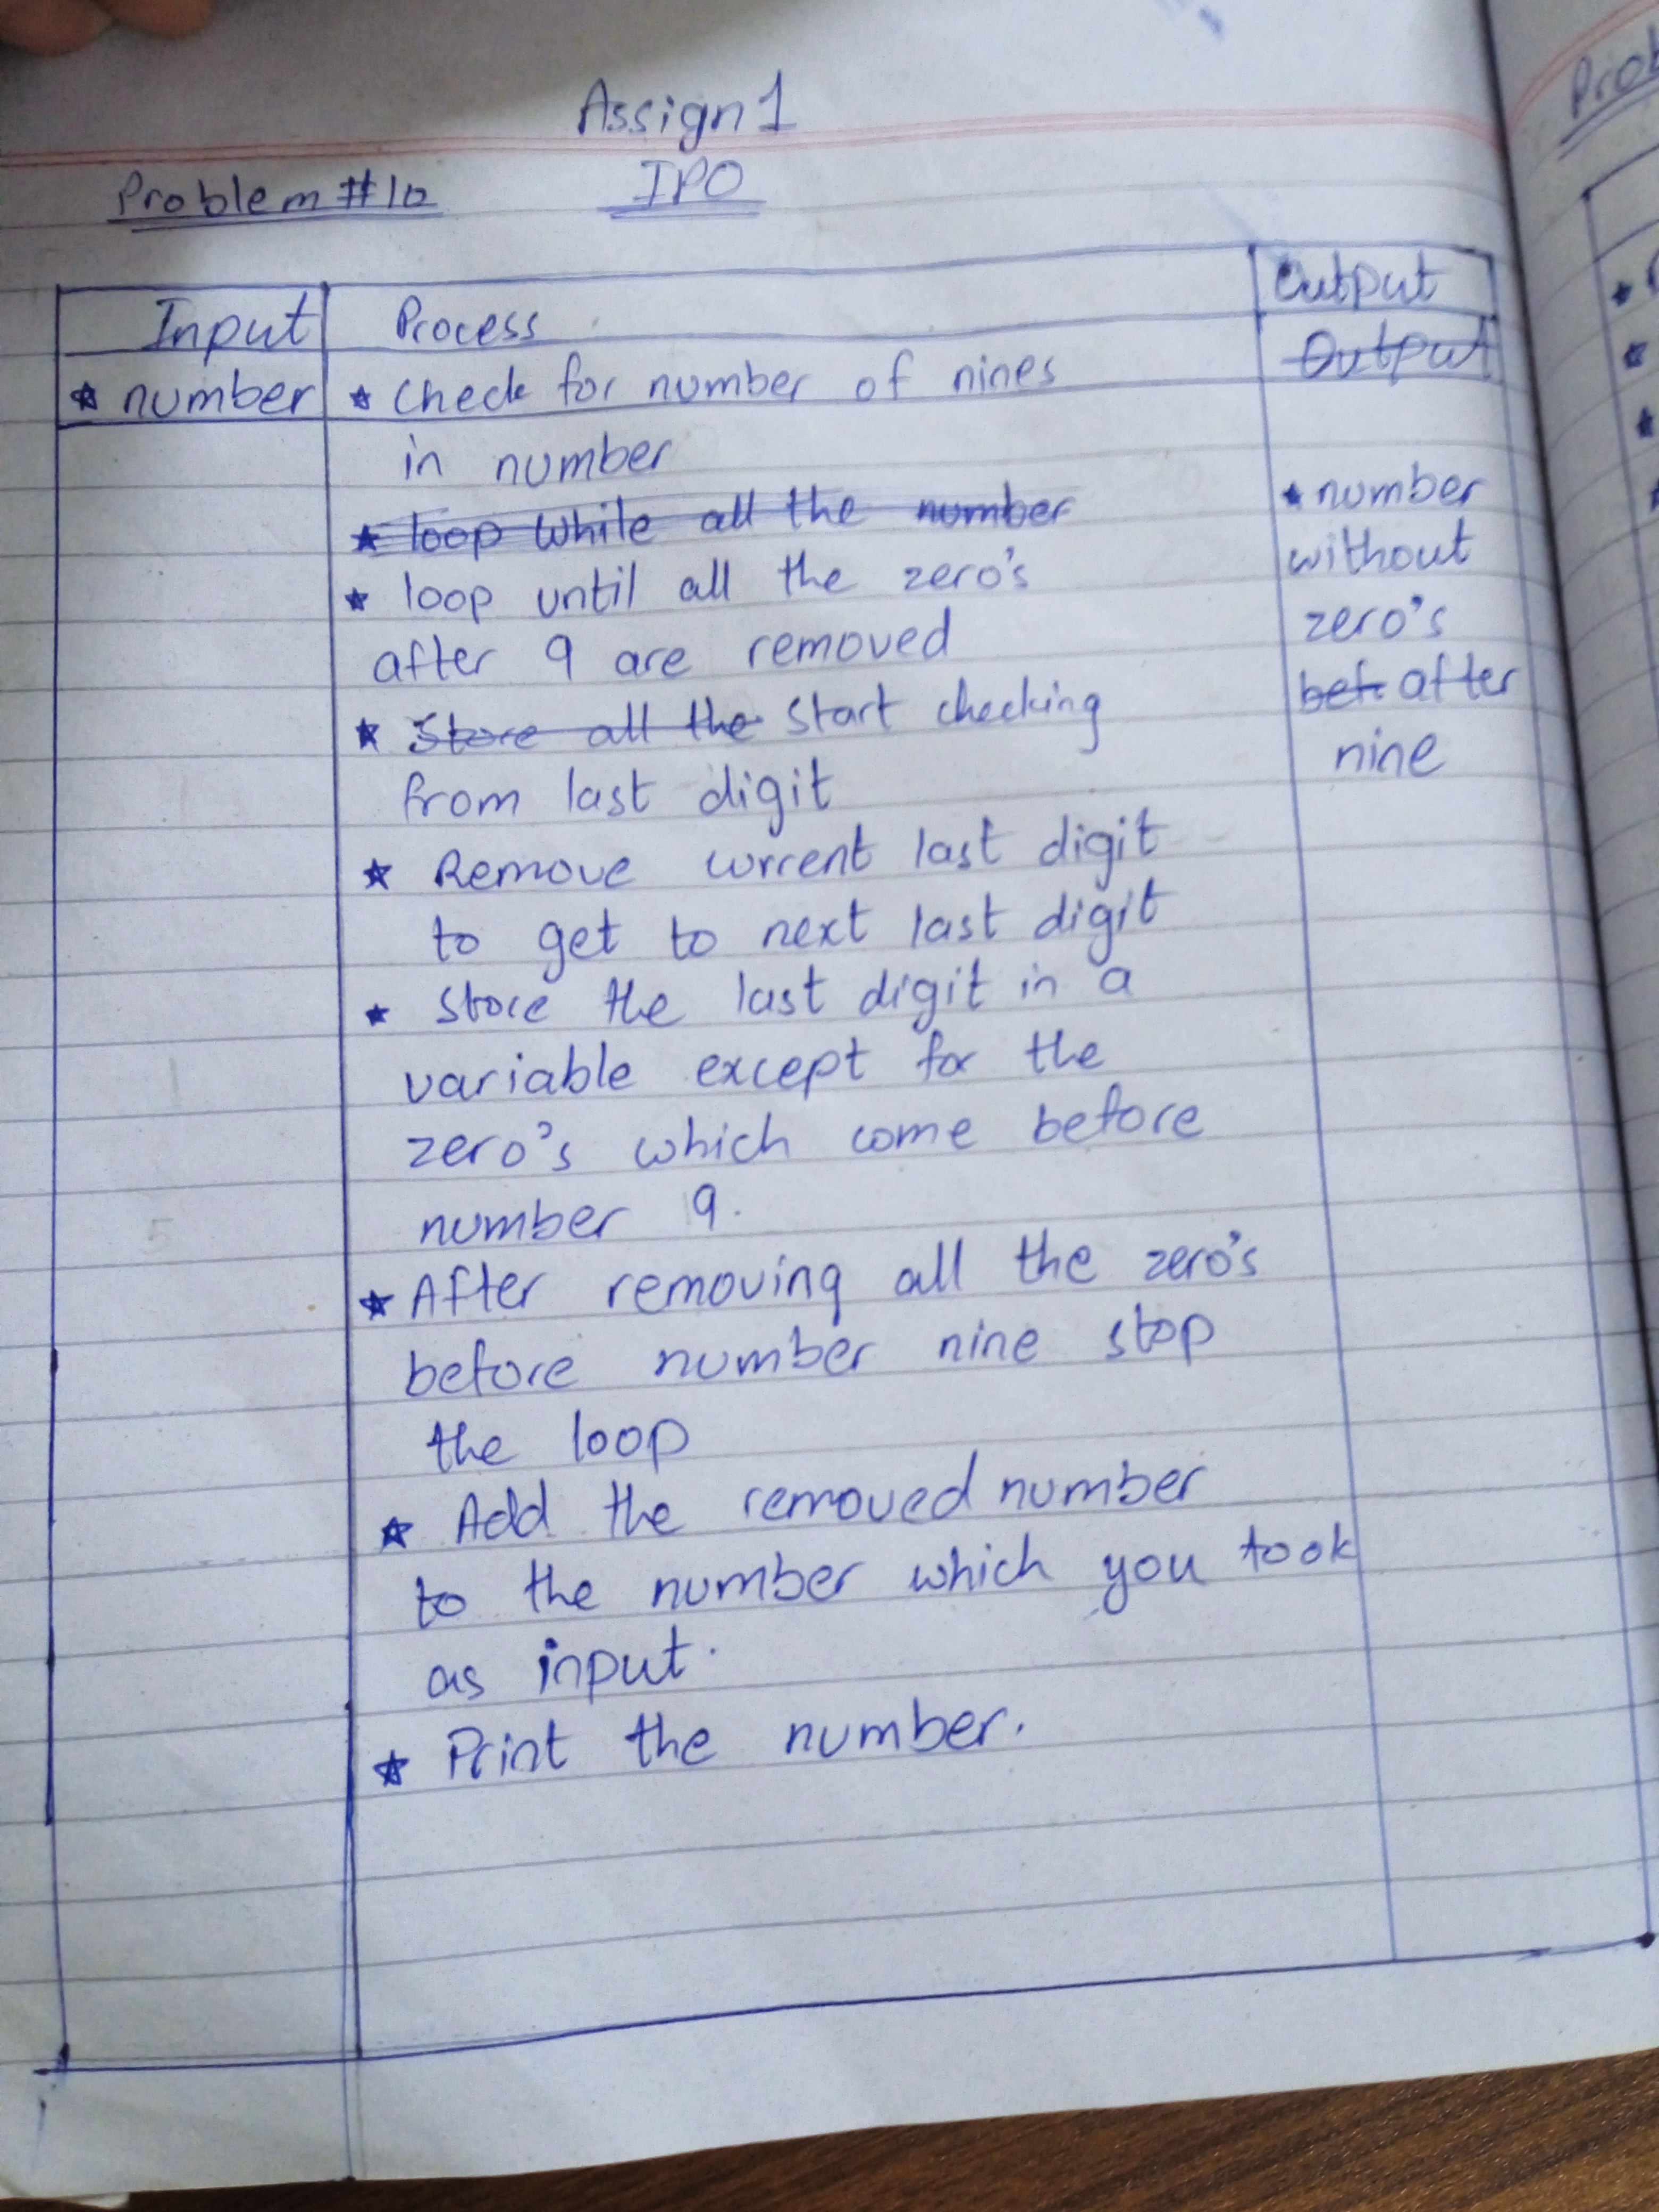 Assign 1
Problem #10
IPO
Input
Process
Output
Output
★ number
★ Check for number of nines
in number
★ loop while all the number
★ loop until all the zero's
after 9 are removed
★ Store all the Start checking
from last digit
★ Remove current last digit
to get to next last digit
★ Store the last digit in a
variable except for the
zero's which come before
number 9.
★ After removing all the zero's
before number nine stop
the loop
★ Add the removed number
to the number which you took
as input.
★ Print the number.
★ number
without
zero's
bef. after
nine
Prob